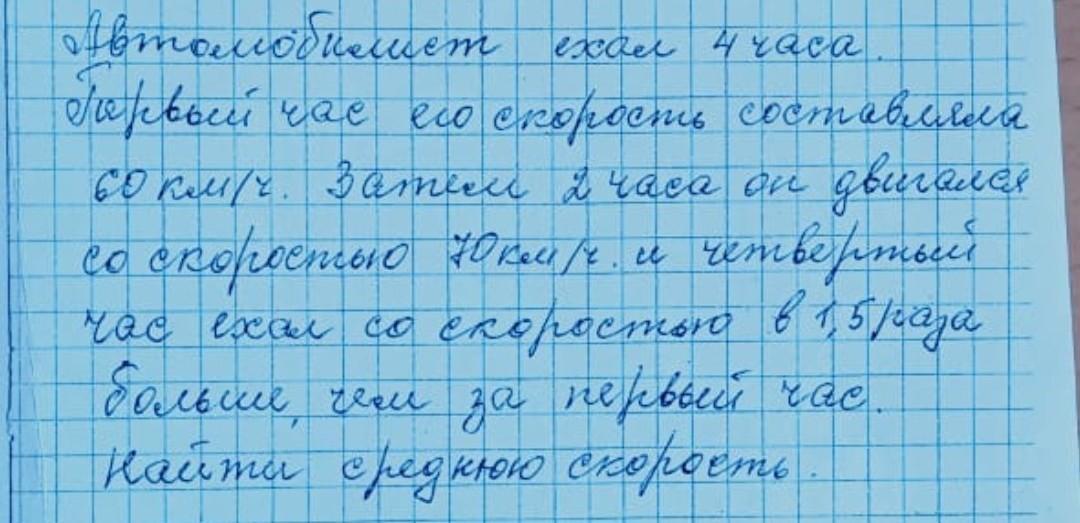 Автомобилист ехал 4 часа.
Первый час его скорость составляла
60 км/ч. Затем 2 часа он двигался
со скоростью 70 км/ч. и четвертый
час ехал со скоростью в 1,5 раза
больше, чем за первый час.
Найти среднюю скорость.